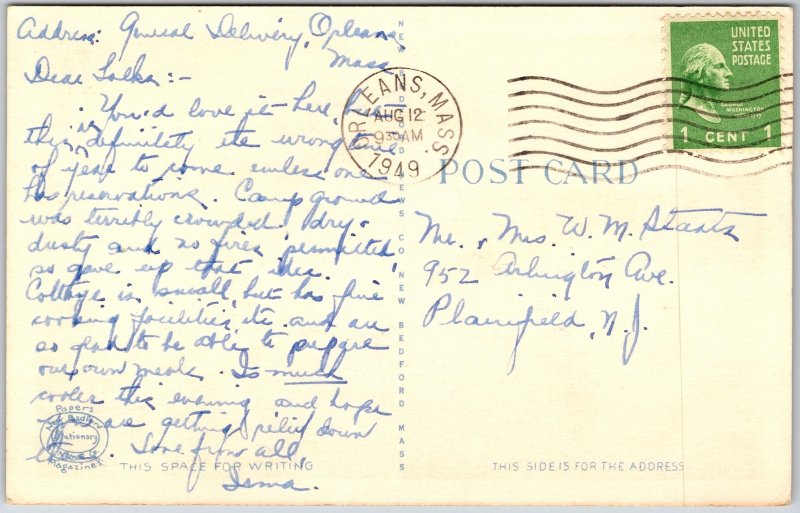 Address: General Delivery, Orleans,
Mass.
Dear Folks:-
You'd love it here, but
this is definitely the wrong time
of year to come unless one
has reservations. Camp ground
was terribly crowded, dry,
dusty and no fires permitted
so gave up that idea.
Cottage is small, but has fine
cooking facilities, etc. and are
so glad to be able to prepare
our own meals. Is much
cooler this evening and hope
you are getting relief down
Love from all,
Irma.
THIS SPACE FOR WRITING
Papers
New Bedford
Stationery
News Co.
Magazines
NEW BEDFORD NEWS CO NEW BEDFORD MASS
ORLEANS, MASS.
AUG 12
9 30 AM
1949
UNITED
STATES
POSTAGE
GEORGE
WASHINGTON
1 CENT 1
POST CARD
Mr., Mrs. W. M. Staats
952 Arlington Ave.
Plainfield, N.J.
THIS SIDE IS FOR THE ADDRESS